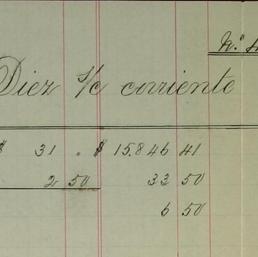 Nº
Diez s/c corriente
$ 31 " $ 15.846 41
2 50 33 50
6 50